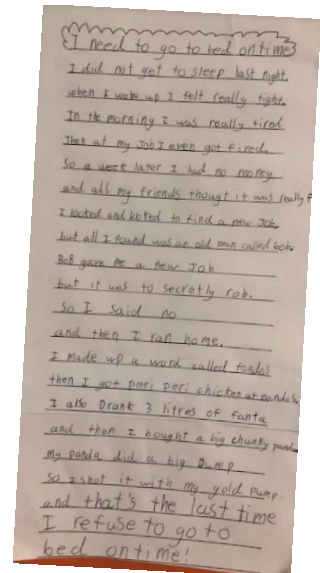 I need to go to bed on time
I did not get to sleep last night.
when I woke up I felt really tight.
In the morning I was really tired
Then at my Job I even got fired.
So a week later I had no money
and all my friends thougt it was really f
I looked and looked to find a new Job
but all I found was an old man called bob.
BoB gave me a new Job
but it was to secretly rob.
So I said no
and then I ran home.
I made up a word called
then I got peri peri chicken at nandos,
I also Drank 3 litres of fanta
and then I bought a big chunky panda
My panda did a big Dump
So I shot it with my gold pump.
and that's the last time
I refuse to go to
bed on time!